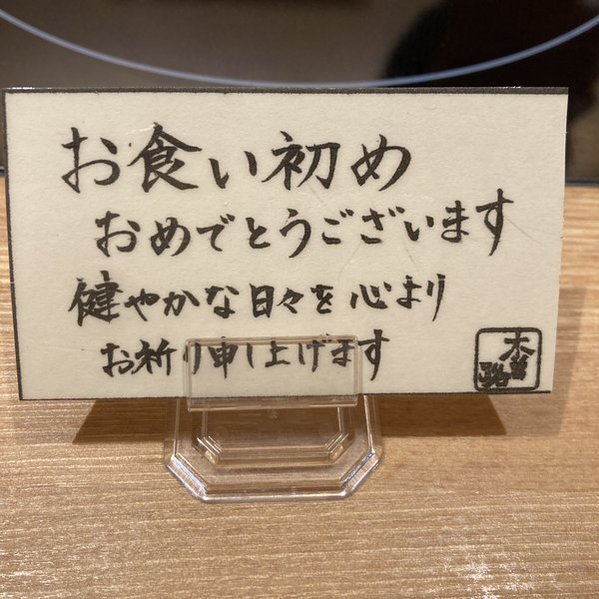 お食い初め
おめでとうございます
健やかな日々を心より
お祈り申し上げます
木曽路